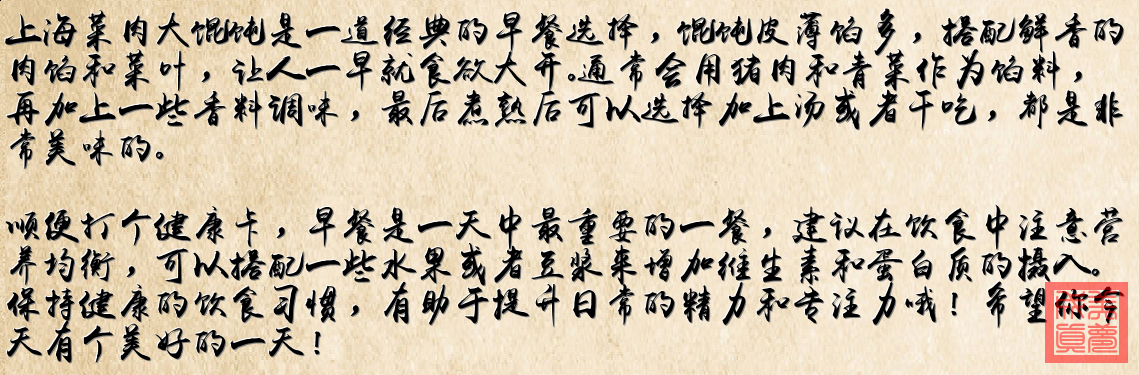 上海菜肉大馄饨是一道经典的早餐选择，馄饨皮薄馅多，搭配鲜香的
肉馅和菜叶，让人一早就食欲大开。通常会用猪肉和青菜作为馅料，
再加上一些香料调味，最后煮熟后可以选择加上汤或者干吃，都是非
常美味的。
顺便打个健康卡，早餐是一天中最重要的一餐，建议在饮食中注意营
养均衡，可以搭配一些水果或者豆浆来增加维生素和蛋白质的摄入。
保持健康的饮食习惯，有助于提升日常的精力和专注力哦！希望你今
天有个美好的一天！